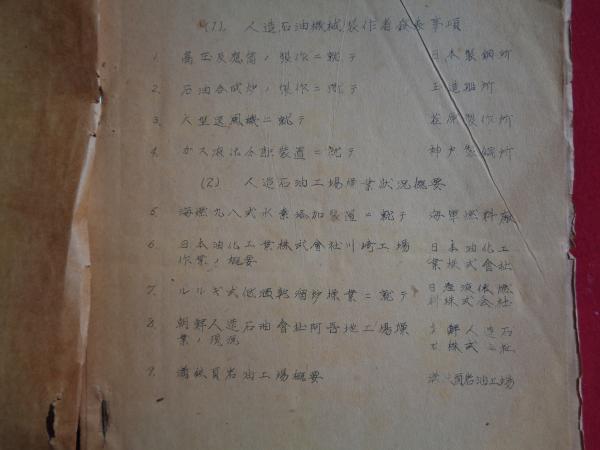 (1). 人造石油機械製作者發表事項
1. 高圧反應筒ノ製作ニ就テ 日本製鋼所
2. 石油合成炉ノ製作ニ就テ 玉造船所
3. 大型送風機ニ就テ 荏原製作所
4. ガス液化分離装置ニ就テ 神戸製鋼所
(2) 人造石油工場操業狀況概要
5. 海燃九八式水素添加装置ニ就テ 海軍燃料廠
6. 日本油化工業株式會社川崎工場 日本油化工
作業ノ概要 業株式會社
7. ルルギ式低温乾溜炉操業ニ就テ 日産液体燃
料株式会社
8. 朝鮮人造石油會社阿吾地工場操 鮮人造石
業ノ現況 株式 社
9. 満鉄頁岩油工場概要 頁岩油工場